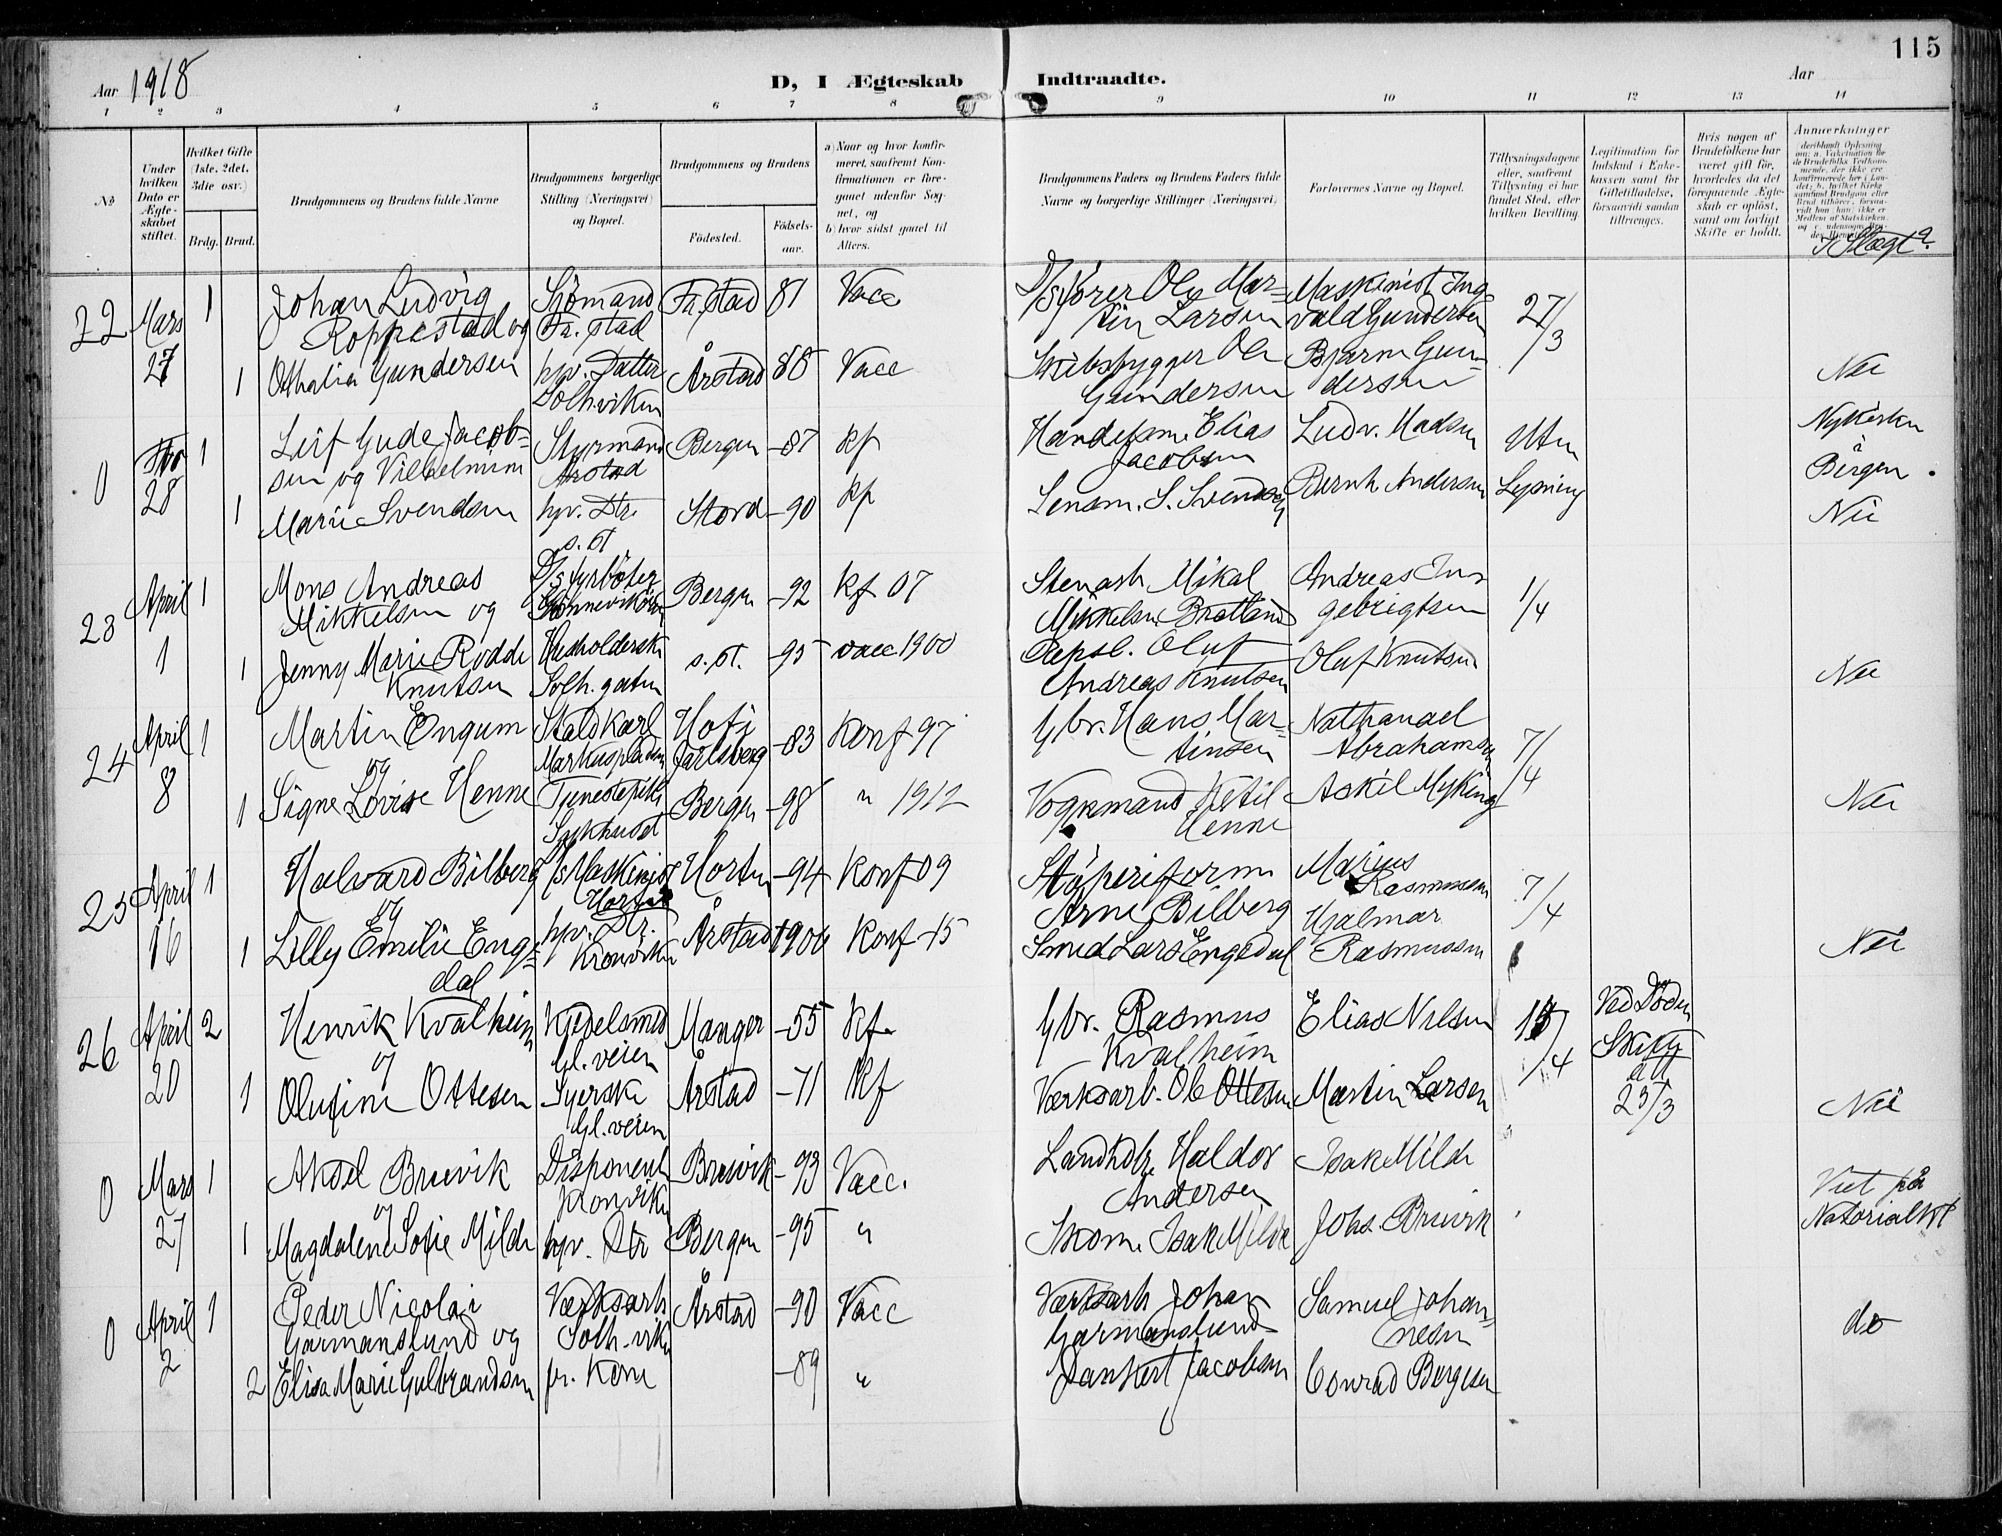 115
Aar 1918
D, I Ægteskab Indtraadte.
Aar
1 2 3 4 5 6 7 8 9 10 11 12 13 14
No
Under hvilken Dato er Ægteskabet stiftet.
Hvilket Gifte (1ste, 2det, 3die osv.)
Brdg. Brud.
Brudgommens og Brudens fulde Navne
Brudgommens borgerlige Stilling (Næringsvei) og Bopæl.
Brudgommens og Brudens
Fødested. Fødselsaar.
a) Naar og hvor konfirmeret, saafremt Konfirmationen er foregaaet udenfor Sognet, og
b) hvor sidst gaaet til Alters.
Brudgommens Faders og Brudens Faders fulde Navne og borgerlige Stillinger (Næringsvei)
Forlovernes Navne og Bopæl.
Tillysningsdagene eller, saafremt Tillysning ei har fundet Sted, efter hvilken Bevilling.
Legitimation for Indskud i Enkekassen samt for Giftetilladelse, forsaavidt saadan tiltrænges.
Hvis nogen af Brudefolkene har været gift før, hvorledes da det foregaaende Ægteskab er opløst, samt om lovligt Skifte er holdt.
Anmerkninger
I Slægt?
22 Mars 27 1 Johan Ludvig Sjømand Fr.stad 81 Vacc D/s fører Ole Mar= Maskinist Ing= 27/3
Roppestad og Fr. stad tin Larsen vald Gundersen
1 Othalia Gundersen hpv. Datter Årstad 88 Vacc Skibsbygger Ole Bjarne Gun= Nei
Solh.viken Gundersen dersen
0 28 1 Leif Gude Jacob= Styrmand Bergen -87 kf Handelsm. Elias Ludv. Madsen Uten Nykirken
sen og Vilhelmine Årstad Jacobsen Bergen.
1 Marie Svendsen hpv. Dtr. Stord -90 kf Lensm. S. Svendsen Bernh Andersen Lysning Nei
s. st
23 April 1 1 Mons Andreas D/s fyrbøter Bergen -92 kf 07 Stenarb Mikal Andreas In= 1/4
Mikkelsen og Mikkelsen Brotland gebrigtsen
1 Jenny Marie Rodde Husholderske s. st. -95 vacc 1900 Repsl. Oluf Oluf Knutsen Nei
Knutsen Solh. gaten Andreas Knutsen
24 April 8 1 Martin Engum Staldkarl Hof i -83 Konf 97 Gbr. Hans Mar= Nathanael 7/4
og Markuspladsen Jarlsberg tinsen Abrahamsen
1 Signe Lovise Henne Tjenestepike Bergen -98 " 1912 Vognmand Ketil Askil Myking Nei
Sykhuset Henne
25 April 16 1 Halvard Bilberg D/s Maskinist Horten -94 Konf 09 Støperiform Marius 7/4
og Horten Arne Bilberg Rasmussen
1 Lilly Emilie Enge= hpv. Dr. Årstad 1900 Konf -15 Smed Lars Engedal Hjalmar Nei
dal Kronviken Rasmussen
26 April 20 2 Henrik Kvalheim Kjedelsmed Manger -55 kf. Gbr. Rasmus Elias Nilsen 15/4 Ved Døden
og Gl. veien Kvalheim Skifte
1 Olufine Ottesen Syerske Årstad -71 kf Værksarb. Ole Ottesen Martin Larsen att 25/3 Nei
Gl. veien
0 Mars 27 1 Aksel Bruvik Disponent Bruvik -93 Vacc. Landhdl. Haldor Isak Milde Viet på
og Kronviken Andersen
1 Magdalene Sofie Milde hpv. Dtr Bergen -95 " Skom. Isak Milde Johs. Bruvik Notorialkt
0 April 2 1 Peder Nicolai Værksarb Årstad -90 Vacc Værksarb Johan Samuel Johan= do
Garmanslund og Solh. viken Garmanslund nesen
2 Elisa Marie Gulbrandsen fr. Kone -89 " Dankert Jacobsen Conrad Bergesen